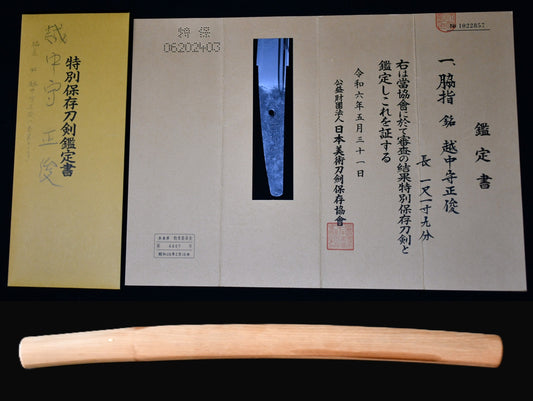 鑑定書
一、脇指 銘 越中守正俊
長 一尺一寸九分
右は當協會に於て審査の結果特別保存刀剣と
鑑定しこれを証する
令和六年五月三十一日
公益財團法人日本美術刀剣保存協會
№ 1022857
特保
06202403
特別保存刀剣鑑定書
越中守 正俊